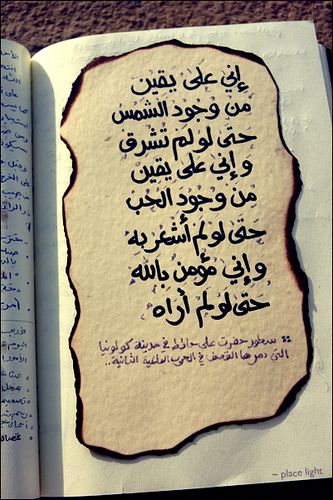 إني على يقين
من وجود الشمس
حتى لو لم تشرق
و إني على يقين
من وجود الحب
حتى لو لم أشعر به
و إني مؤمن بالله
حتى لو لم أراه
:: سطور حفرت على حائط في مدينة كولونيا
التي دمرها القصف في الحرب العالمية الثانية..
~ place light